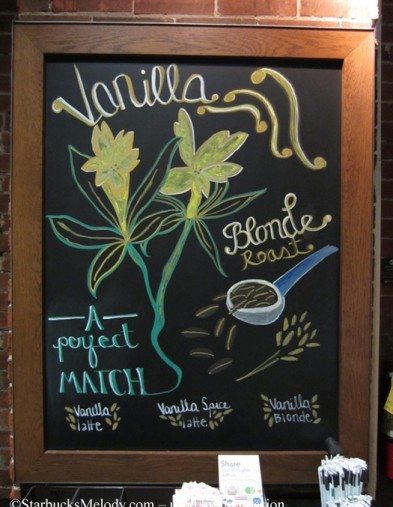 Vanilla
Blonde
Roast
A
perfect
MATCH
Vanilla
latte
Vanilla Spice
latte
Vanilla
Blonde
Share
©StarbucksMelody.com